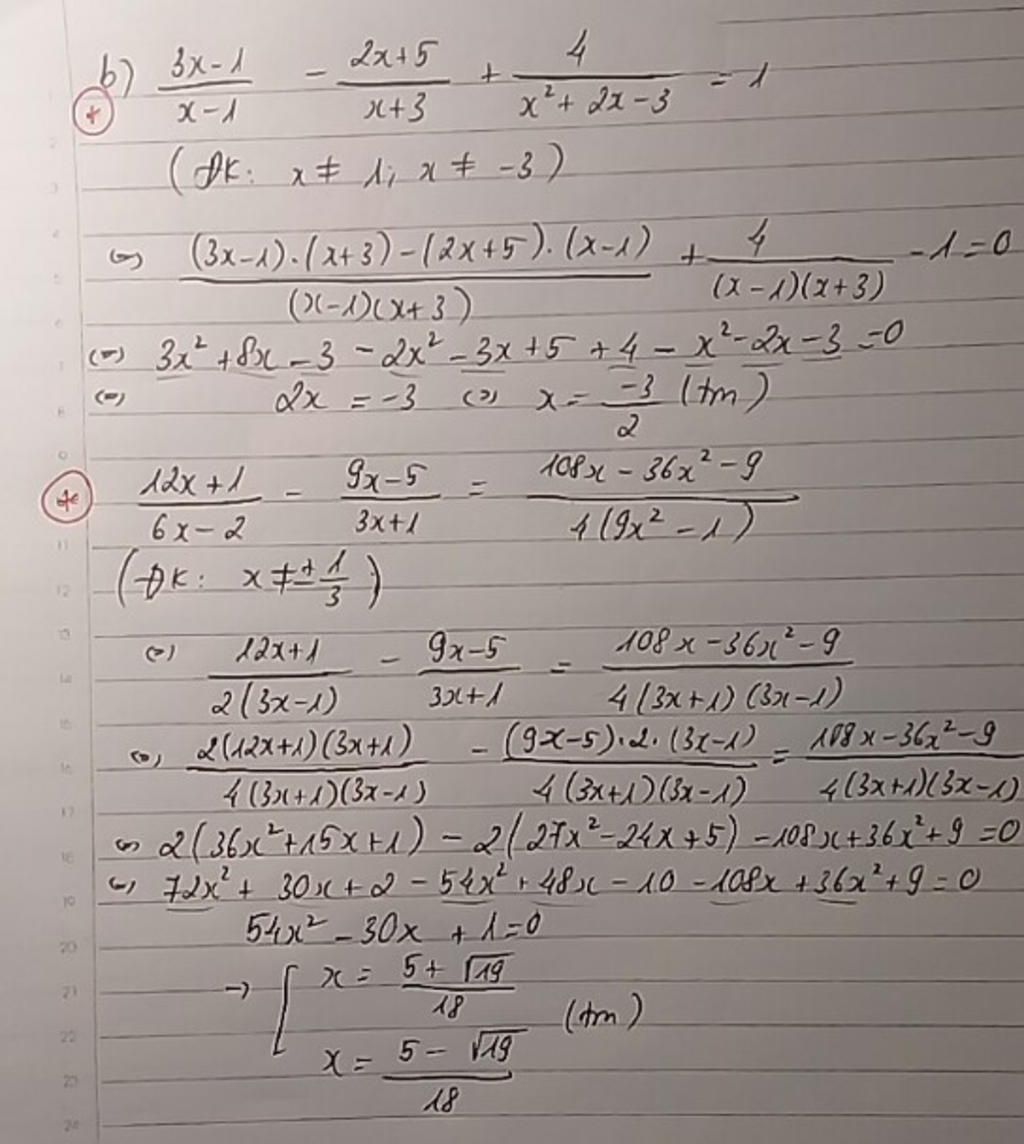 b) (3x-1)/(x-1) - (2x+5)/(x+3) + 4/(x²+2x-3) = 1
(ĐK: x ≠ 1; x ≠ -3)
⇔ ((3x-1).(x+3)-(2x+5).(x-1))/((x-1)(x+3)) + 4/((x-1)(x+3)) - 1 = 0
⇔ 3x² + 8x - 3 - 2x² - 3x + 5 + 4 - x² - 2x - 3 = 0
⇔ 2x = -3 ⇔ x = -3/2 (tm)
* (12x+1)/(6x-2) - (9x-5)/(3x+1) = (108x - 36x² - 9)/(4(9x² - 1))
(ĐK: x ≠ ± 1/3)
⇔ (12x+1)/(2(3x-1)) - (9x-5)/(3x+1) = (108x - 36x² - 9)/(4(3x+1)(3x-1))
⇔ (2(12x+1)(3x+1))/(4(3x+1)(3x-1)) - ((9x-5).2.(3x-1))/(4(3x+1)(3x-1)) = (108x - 36x² - 9)/(4(3x+1)(3x-1))
⇔ 2(36x² + 15x + 1) - 2(27x² - 24x + 5) - 108x + 36x² + 9 = 0
⇔ 72x² + 30x + 2 - 54x² + 48x - 10 - 108x + 36x² + 9 = 0
54x² - 30x + 1 = 0
→ [ x = (5 + √19)/18
(tm)
x = (5 - √19)/18